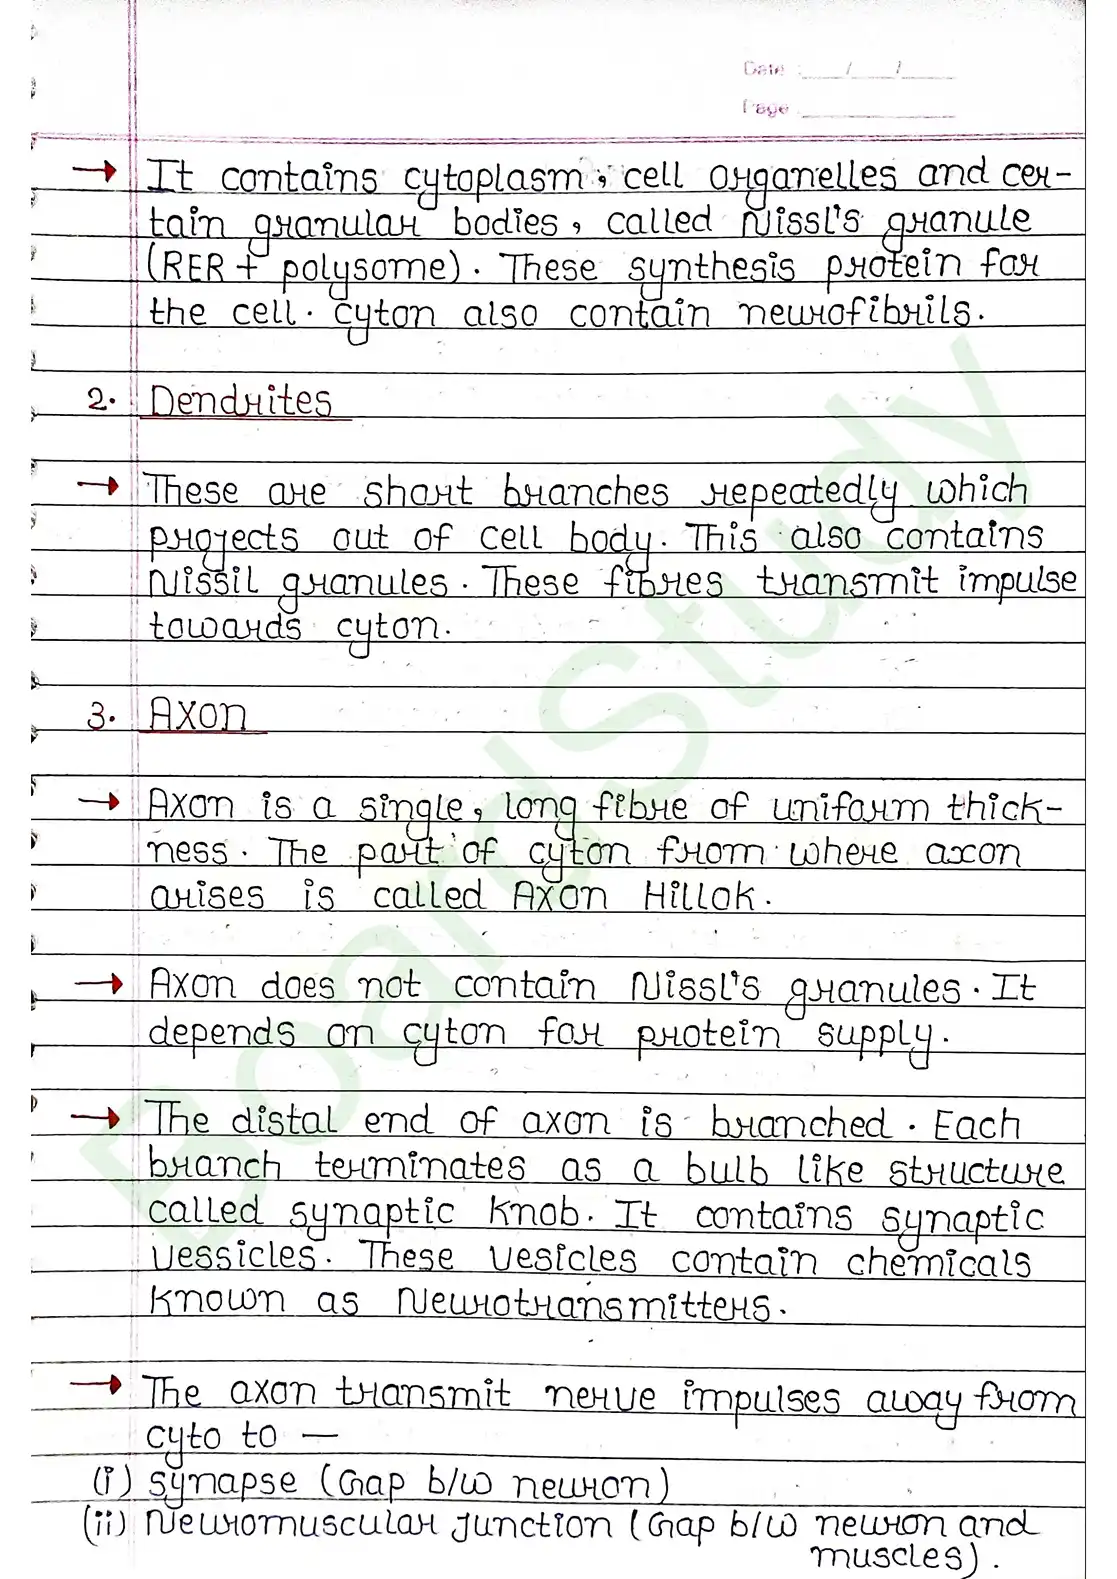 Date : ___/___/___
Page ___
→ It contains cytoplasm, cell organelles and cer-
tain granular bodies, called Nissl's granule
(RER + polysome). These synthesis protein for
the cell. Cyton also contain neurofibrils.
2. Dendrites
→ These are short branches repeatedly which
projects out of cell body. This also contains
Nissil granules. These fibres transmit impulse
towards cyton.
3. Axon
→ Axon is a single, long fibre of uniform thick-
ness. The part of cyton from where axon
arises is called Axon Hillok.
→ Axon does not contain Nissl's granules. It
depends on cyton for protein supply.
→ The distal end of axon is branched. Each
branch terminates as a bulb like structure
called synaptic knob. It contains synaptic
vessicles. These vesicles contain chemicals
known as Neurotransmitters.
→ The axon transmit nerve impulses away from
cyto to —
(i) synapse (Gap b/w neuron)
(ii) Neuromuscular junction (Gap b/w neuron and
muscles).
BoardStudy